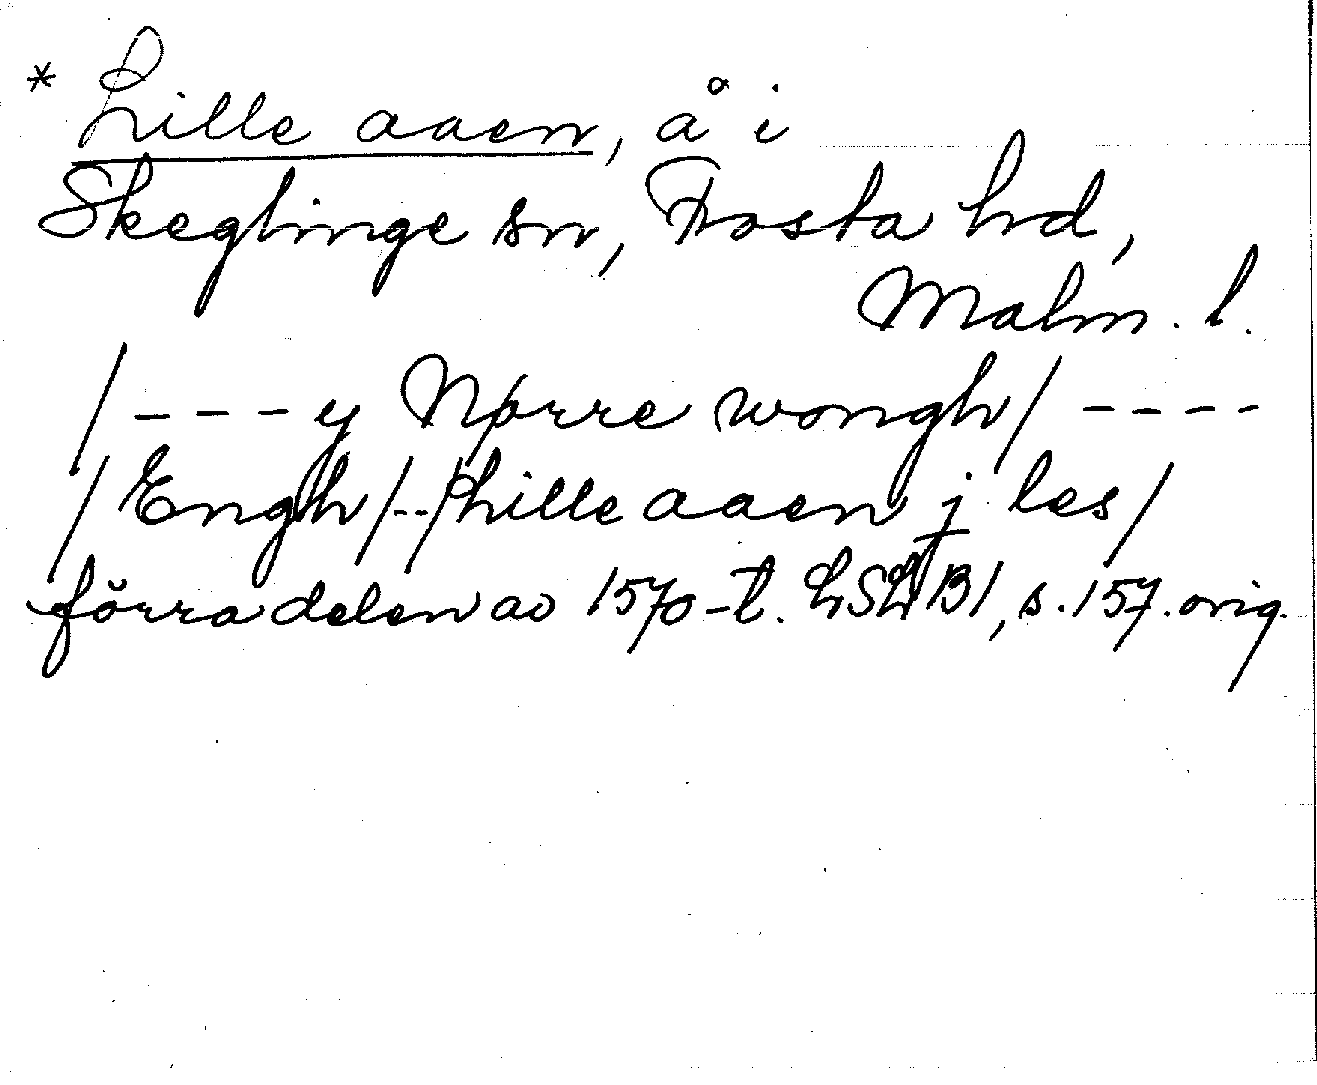 * Lille aaen, å i
Skeglinge sn, Frosta hd,
Malm. l.
/---y Nørre wongh/----
/Engh/--/Lille aaen j les/
förra delen av 1570-t. LSLJB1, s.157.orig.